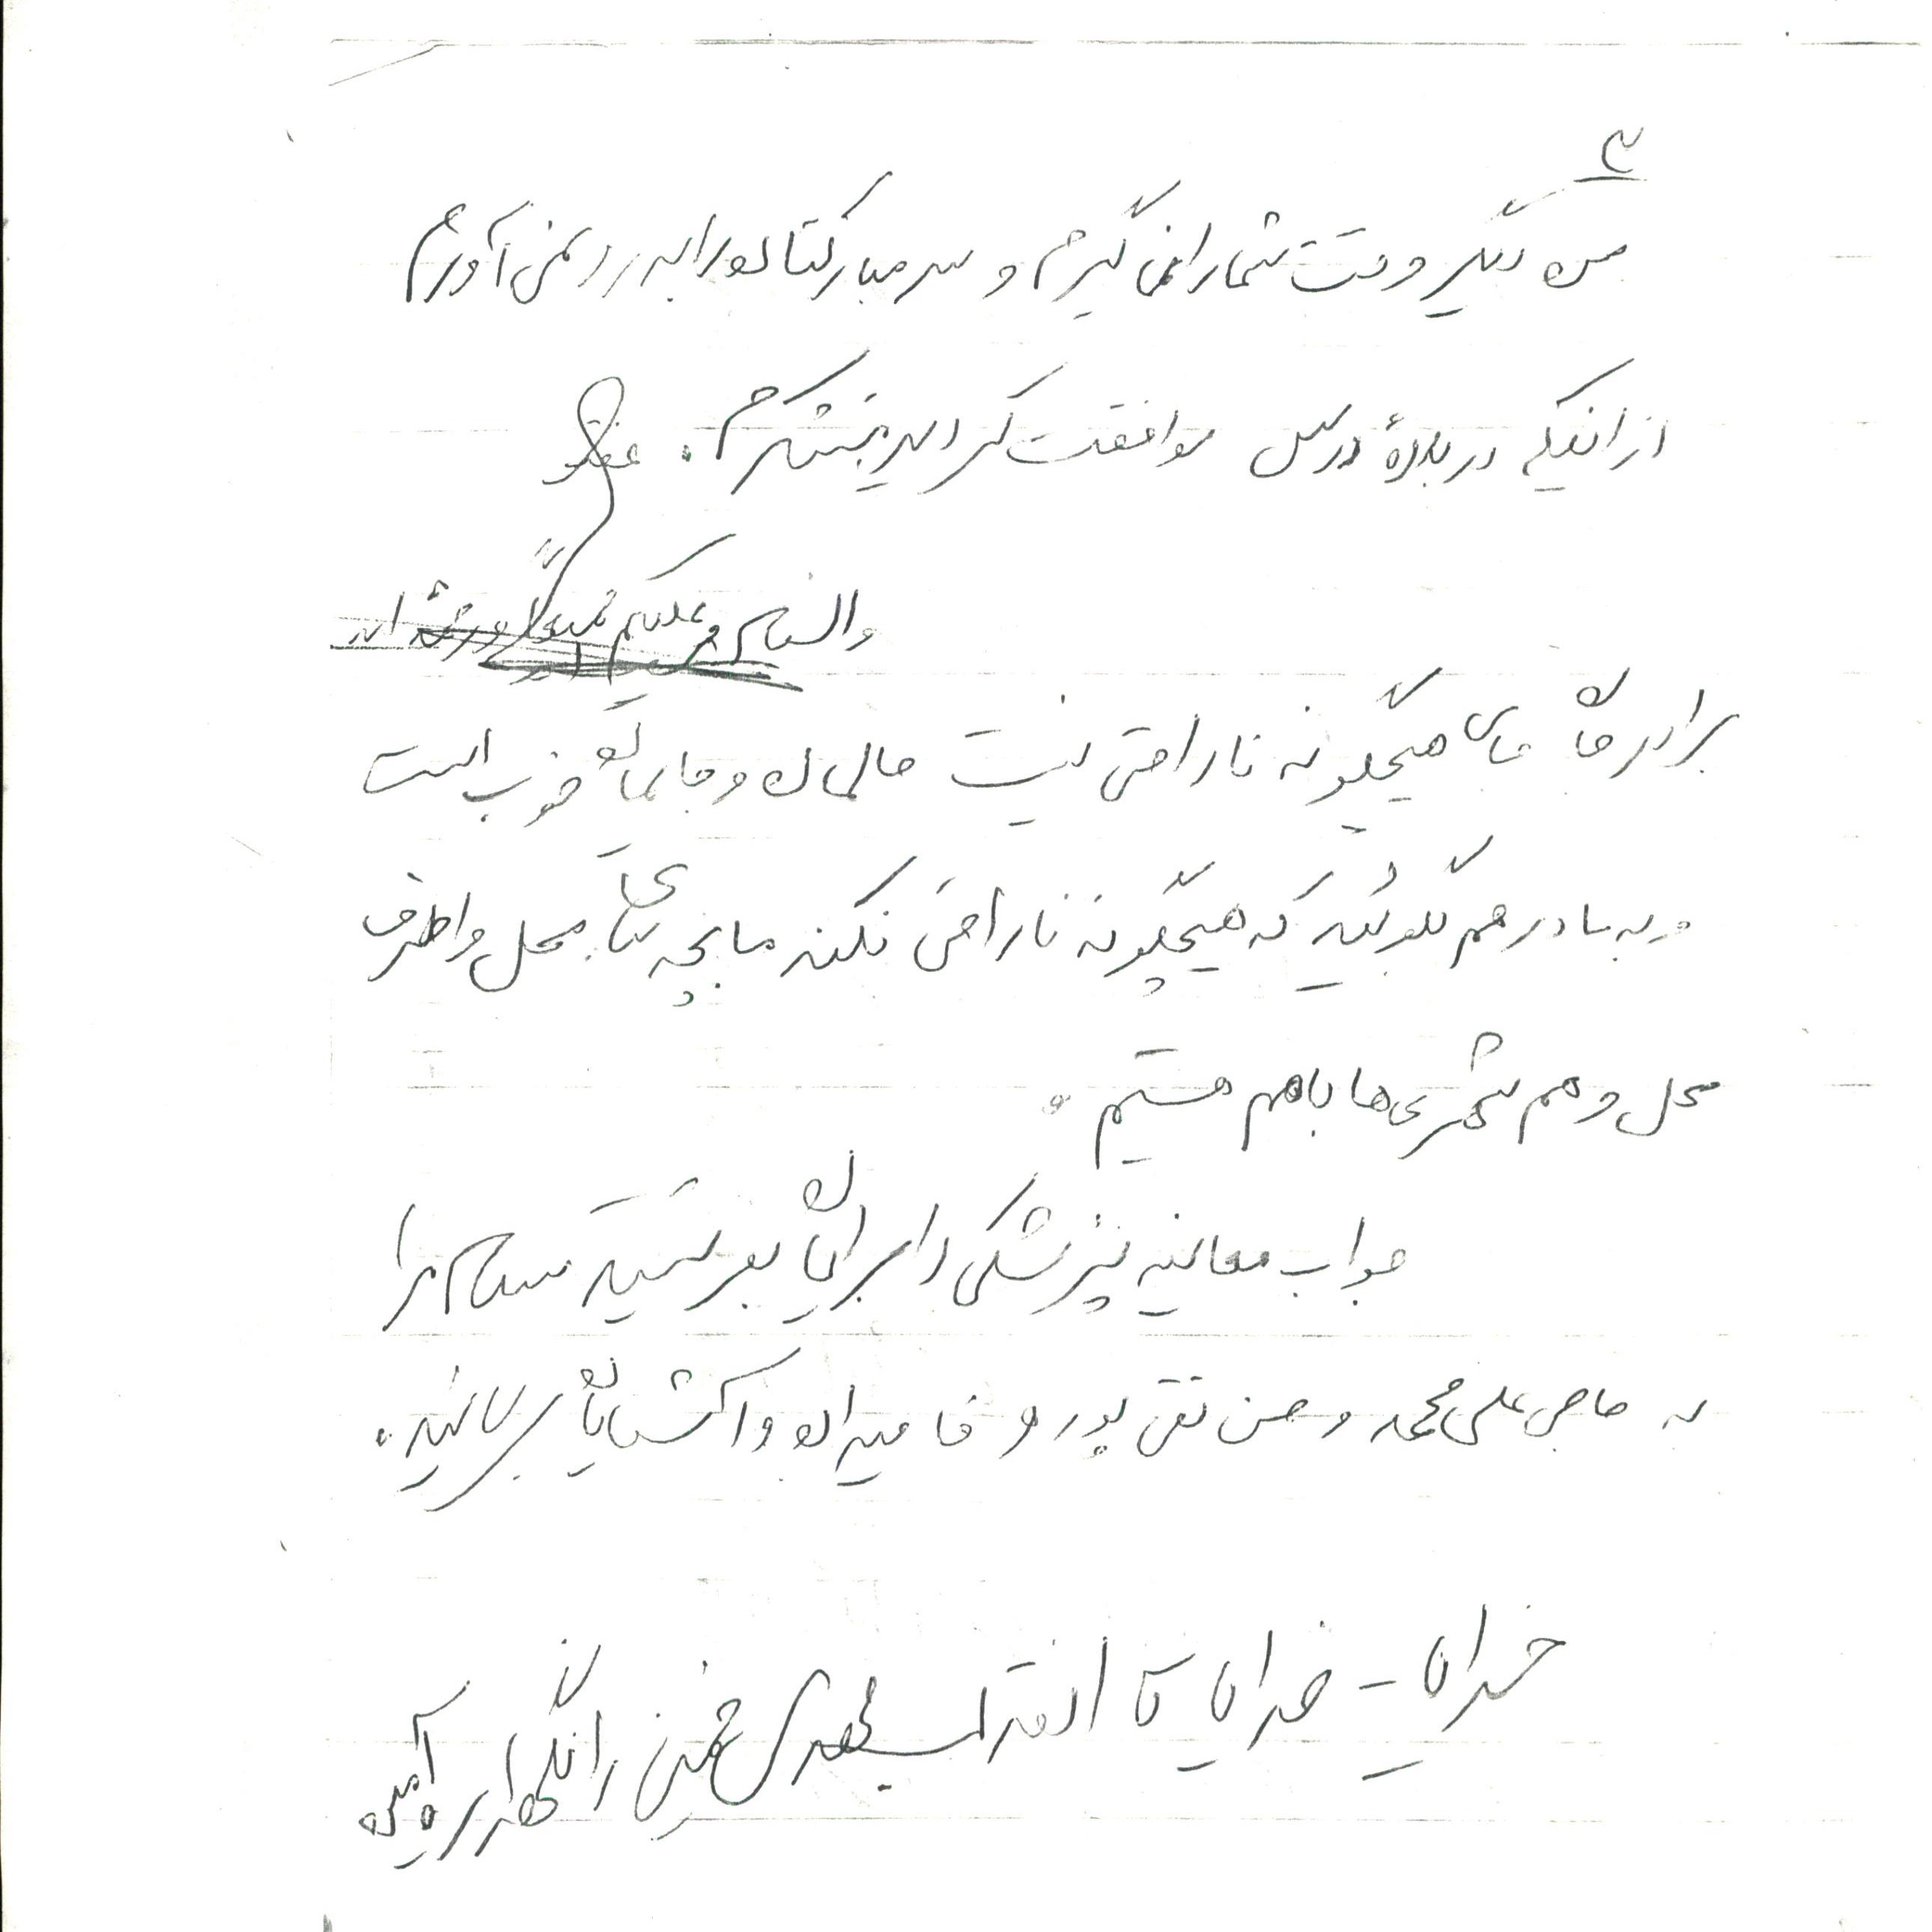 ۳
من دیگر وقت شما را نمی گیرم و سر مبارکتان را بدرد نمی آورم
از اینکه درباره درس موافقت کرده‌اید متشکرم.
والسلام علیکم
برادر جان جای هیچگونه ناراحتی نیست حالمان و جایمان خوب است
و به مادر هم بگوئید که هیچگونه ناراحتی نکند ما بچه های محل و اطراف
محل و هم شهری ها باهم هستیم.
جواب معاینه پزشکی را برایمان بفرستید سلام مرا
به حاجی علی محمد و حسن تقی پور و فامیلان و آشنایان برسانید.
خدایا - خدایا تا انقلاب مهدی خمینی را نگهدار آمین